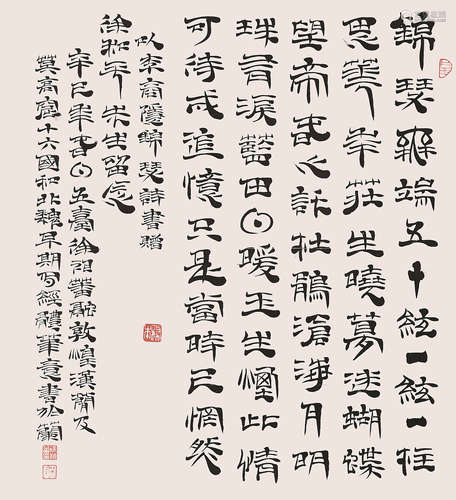 錦瑟無端五十絃一絃一柱
思華年莊生曉夢迷蝴蝶
望帝春心託杜鵑滄海月明
珠有淚藍田日暖玉生煙此情
可待成追憶只是當時已惘然
以李商隱錦瑟詩書贈
徐松平先生留念
辛巳年春日五臺徐祖蕃融敦煌漢簡及
莫高窟十六國和北魏早期寫經體筆意書於蘭